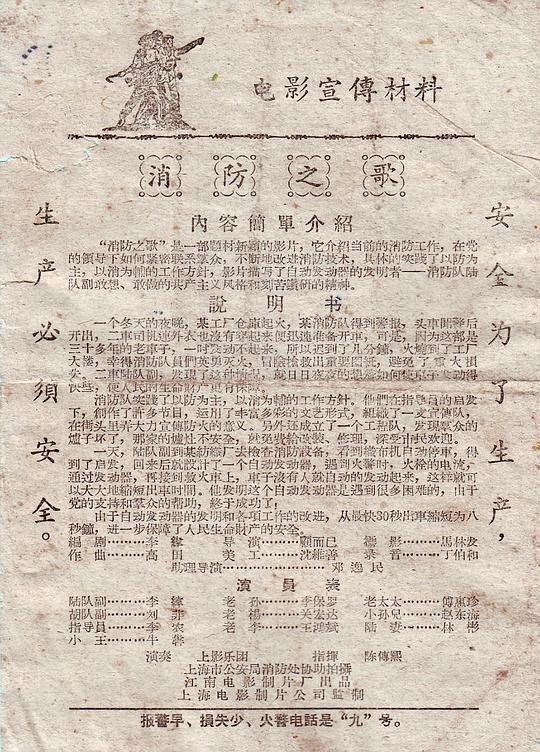 电影宣傳材料
消防之歌
安全为了生产，
生产必須安全。
內容簡單介紹
“消防之歌”是一部題材新穎的影片，它介紹当前的消防工作，在党
的領导下如何紧密联系羣众，不断地改进消防技术，具体的实践了以防为
主，以消为輔的工作方針，影片描写了自动发动器的发明者——消防队陆
队副敢想、敢做的共产主义风格和刻苦鑽研的精神。
說明书
一个冬天的夜晚，某工厂仓庫起火，某消防队得到警报，头車開警后
开出，二車司机連外衣也沒有穿起来便迅速准备开車，可是，因为这部是
三十多年的老車子，一时发动不起来，所以迟到了几分鐘，火燒到了工厂
大楼，幸得消防队員們英勇灭火，冒險搶出重要图紙，避免了重大損
失。二車陆队副，发現了这种情况，成日日夜夜的想着如何使車子发动得
快些，使人民的生命財产更有保障。
消防队实践了以防为主，以消为輔的工作方針。他們在指导員的启发
下，創作了許多节目，运用了丰富多彩的文艺形式，組織了一支宣傳队，
在街头里弄大力宣傳防火的意义。另外还成立了一个工程队，发現羣众的
爐子坏了，那家的爐灶不安全，就免費給改裝、修理，深受市民欢迎。
一天，陆队副到某紡織厂去檢查消防設备，看到織布机自动停車，得
到了启发，回来后就設計了一个自动发动器，遇到火警时，火栓的电流，
通过发动器，再接到救火車上，車子沒有人就自动的发动起来，这样就可
以大大地縮短出車时間。他发明这个自动发动器是遇到很多困难的，由于
党的支持和羣众的帮助，終于成功了！
由于自动发动器的发明和各項工作的改进，从最快30秒出車縮短为八
秒鐘，进一步保障了人民生命財产的安全。
編剧………李緯 导演………顧而已 攝影………馬林发
作曲………高田 美工………沈維善 录音………丁伯和
助理导演………………邓逸民
演員表
陆队副………李緯 老孙………李保罗 老太太………傅惠珍
胡队副………刘非 老楊………关宏达 小孙兒………赵东海
指导員………李农 老李………王鴻斌 陆妻………林彬
小王………牛犇
演奏 上影乐团 指揮 陈傳熙
上海市公安局消防处协助拍攝
江南电影制片厂出品
上海电影制片公司監制
报警早、損失少、火警电話是“九”号。